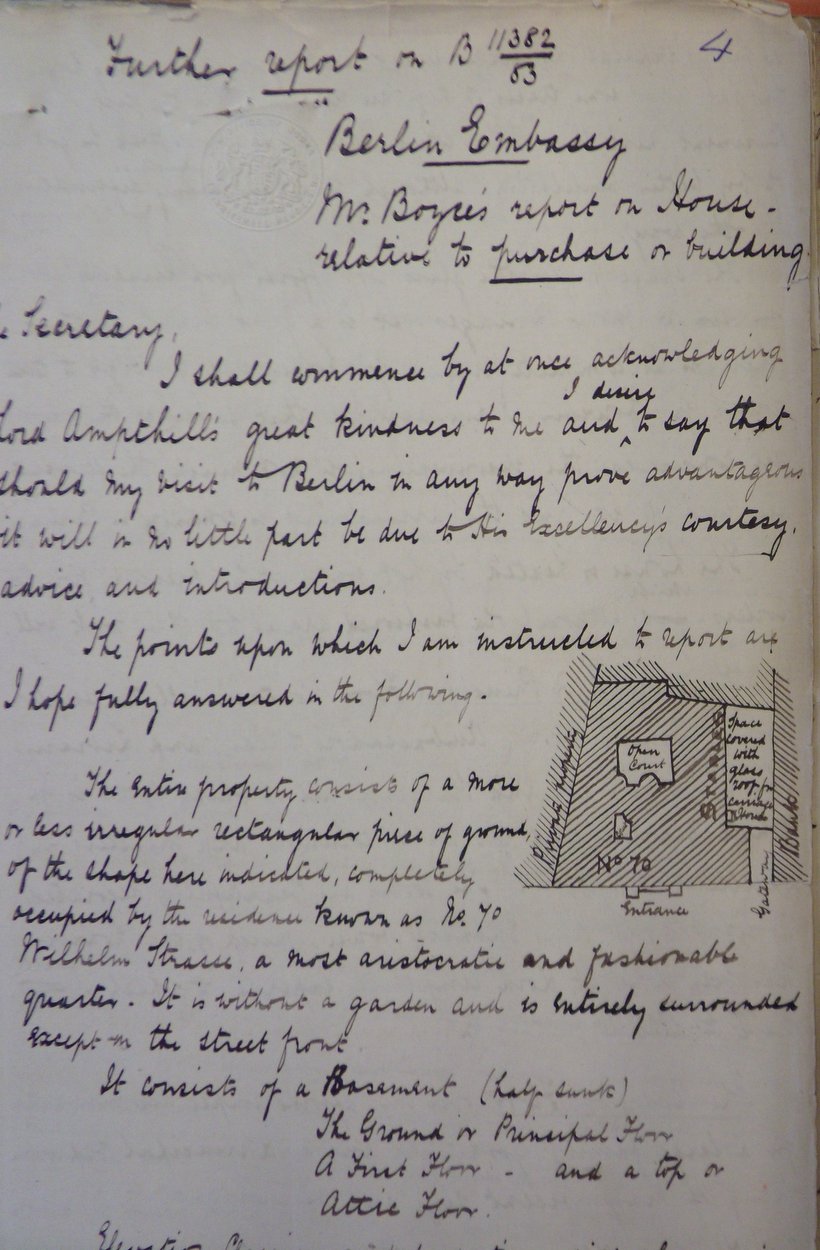 Further report on B 11382/83
4
Berlin Embassy
Mr. Boyce's report on House -
relative to purchase or building.
Secretary,
I shall commence by at once acknowledging
I desire
Lord Ampthill's great kindness to me and ^ to say that
should my visit to Berlin in any way prove advantageous
it will in no little part be due to His Excellency's courtesy,
advice and introductions.
The points upon which I am instructed to report are
I hope fully answered in the following.
The entire property consists of a more
or less irregular rectangular piece of ground,
of the shape here indicated, completely
occupied by the residence known as No. 70
Wilhelm Strasse, a most aristocratic and fashionable
quarter. It is without a garden and is entirely surrounded
except on the street front
It consists of a Basement (half sunk)
The Ground or Principal Floor
A First Floor - and a top or
Attic Floor.
Private property
Open
Court
No 70
Entrance
Stables
Space
covered
with
glass
roof for
carriages
Bank
Gateway